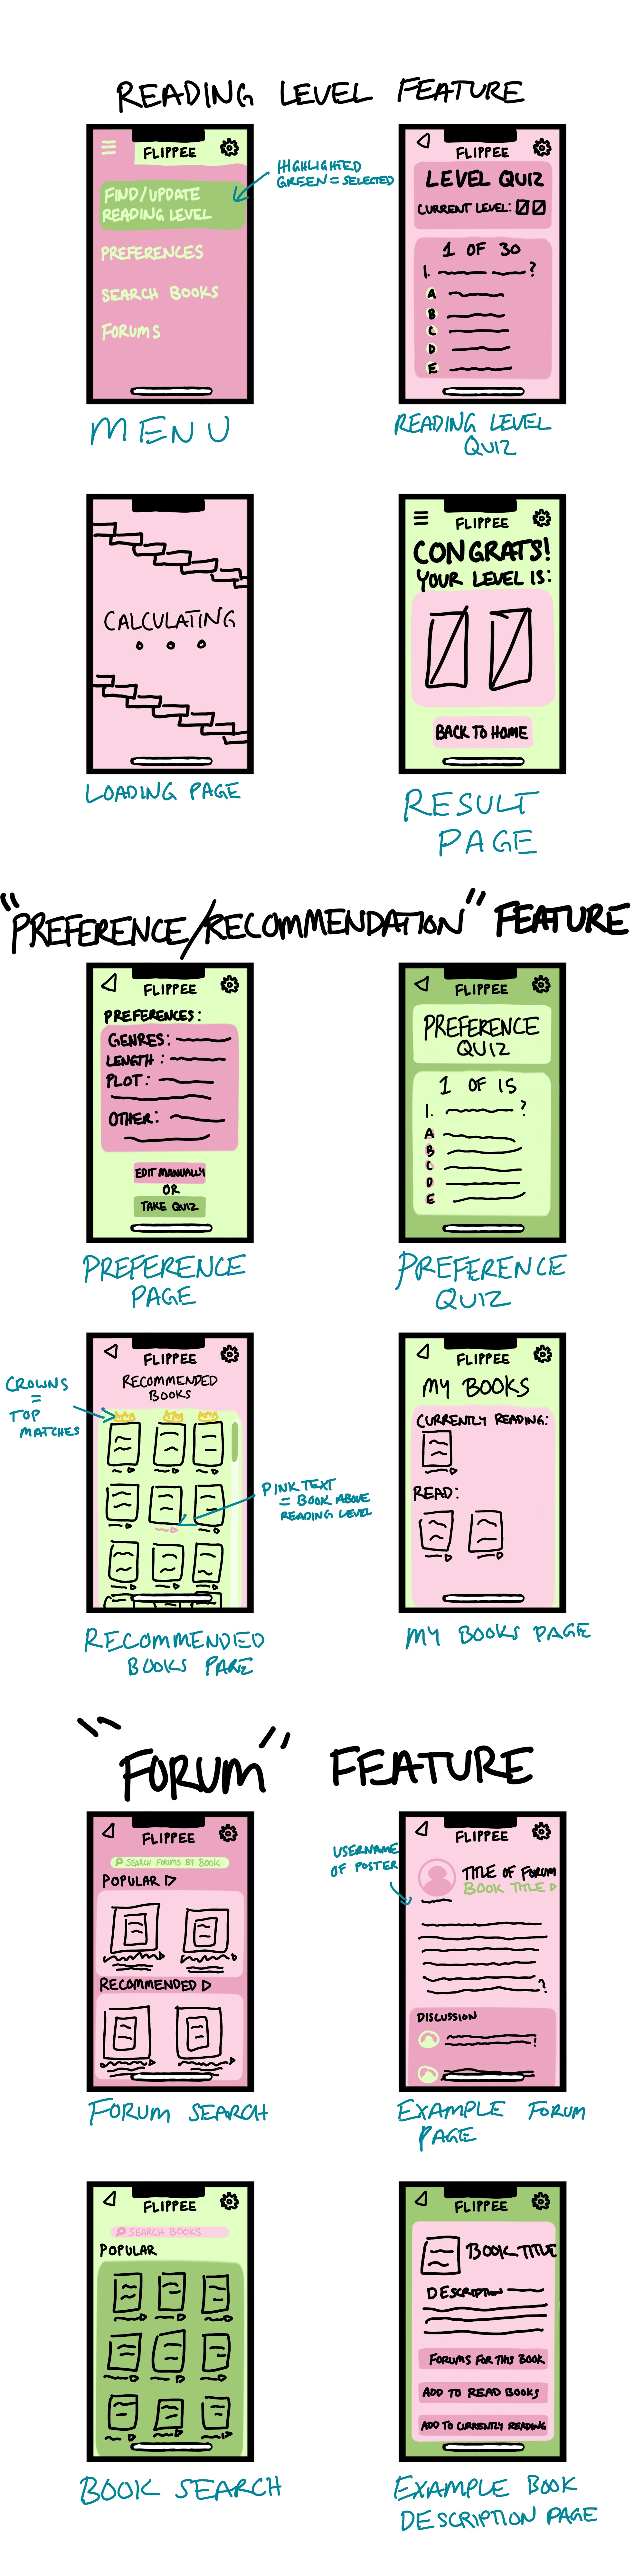 READING LEVEL FEATURE
FLIPPEE
FIND/UPDATE
READING LEVEL
PREFERENCES
SEARCH BOOKS
FORUMS
HIGHLIGHTED
GREEN = SELECTED
MENU
FLIPPEE
LEVEL QUIZ
CURRENT LEVEL:
1 OF 30
1. ?
A
B
C
D
E
READING LEVEL
QUIZ
CALCULATING
...
LOADING PAGE
FLIPPEE
CONGRATS!
YOUR LEVEL IS:
BACK TO HOME
RESULT
PAGE
"PREFERENCE/RECOMMENDATION" FEATURE
FLIPPEE
PREFERENCES:
GENRES:
LENGTH:
PLOT:
OTHER:
EDIT MANUALLY
OR
TAKE QUIZ
PREFERENCE
PAGE
FLIPPEE
PREFERENCE
QUIZ
1 OF 15
1. ?
A
B
C
D
E
PREFERENCE
QUIZ
CROWNS
=
TOP
MATCHES
FLIPPEE
RECOMMENDED
BOOKS
PINK TEXT
= BOOK ABOVE
READING LEVEL
RECOMMENDED
BOOKS PAGE
FLIPPEE
MY BOOKS
CURRENTLY READING:
READ:
MY BOOKS PAGE
"FORUM" FEATURE
FLIPPEE
SEARCH FORUMS BY BOOK
POPULAR
RECOMMENDED
FORUM SEARCH
USERNAME
OF POSTER
FLIPPEE
TITLE OF FORUM
BOOK TITLE
?
DISCUSSION
EXAMPLE FORUM
PAGE
FLIPPEE
SEARCH BOOKS
POPULAR
BOOK SEARCH
FLIPPEE
BOOK TITLE
DESCRIPTION
FORUMS FOR THIS BOOK
ADD TO READ BOOKS
ADD TO CURRENTLY READING
EXAMPLE BOOK
DESCRIPTION PAGE